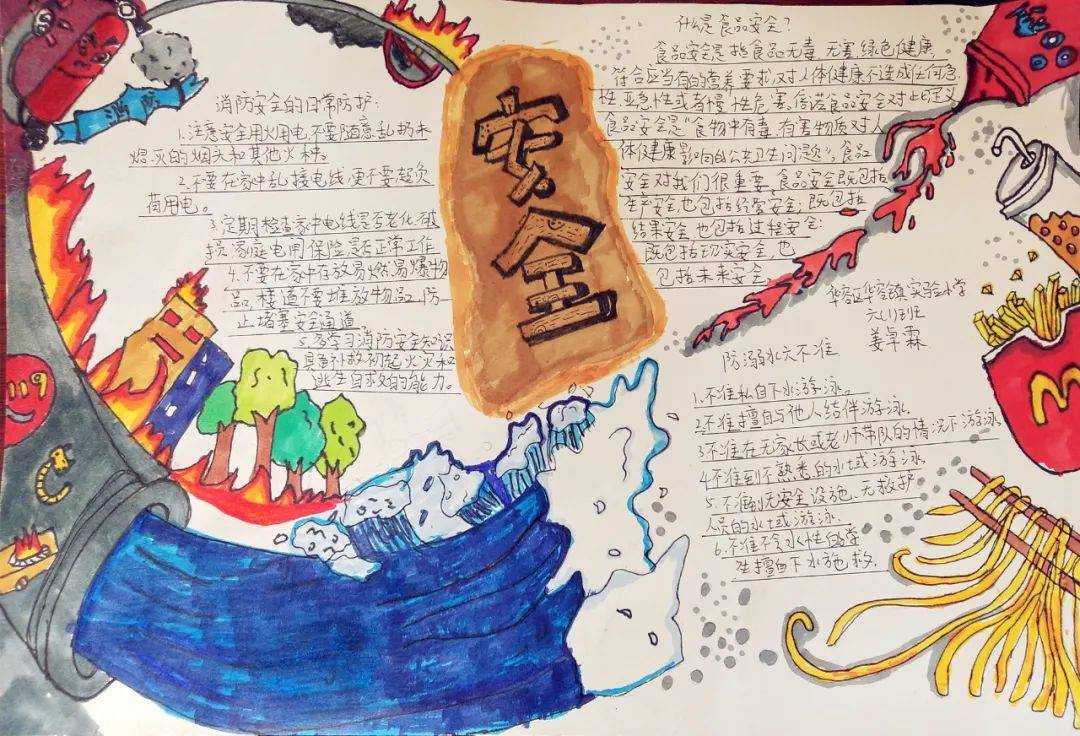 消防安全的日常防护：
1.注意安全用火用电不要随意乱扔未
熄灭的烟头和其他火种。
2.不要在家中乱接电线，更不要超负
荷用电。
3.定期检查家中电线是否老化、破
损家庭电用保险是否正常工作
4.不要在家中存放易燃易爆物
品，楼道不要堆放物品，防
止堵塞安全通道
5.多学习消防安全知识
具备扑救初起火灾和
逃生自救的能力。
消防
安全
什么是食品安全？
食品安全是指食品无毒、无害，绿色健康，
符合应当有的营养要求，对人体健康不造成任何急
性、亚急性或者慢性危害。食品安全
食品安全是“食物中有毒、有害物质对人
体健康影响的公共卫生问题”，食品
安全对我们很重要，食品安全既包括
生产安全，也包括经营安全；既包括
结果安全，也包括过程安全；
既包括现实安全，也
包括未来安全
华容县华容镇实验小学
六(1)班
姜卓霖
防溺水六不准
1.不准私自下水游泳。
2.不准擅自与他人结伴游泳
3.不准在无家长或老师带队的情况下游泳
4.不准到不熟悉的水域游泳。
5.不准到无安全设施、无救护
人员的水域游泳。
6.不准不会水性的学
生擅自下水施救。
119
M